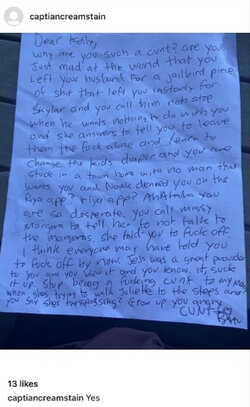 captiancreamstain
Dear Kelly,
why are you such a cunt? are you
Just mad at the world that you
Left your husband for a jailbird piece
of shit that left you instantly for
Skylar and you call him non stop
when he wants nothing to do with you
and she answers to tell you to leave
them the fuck alone and learn to
change the kids diaper and you are
stuck in a town home with no man that
wants you and denied you on the
Rya app? riya app? HAHAHAHA you
are so desperate, you call missy
margera to tell her to not talk to
the margeras, she told you to fuck off.
I think everyone may have told you
to fuck off by now. Jess was a great provider
to you and you blew it and you know it, suck
it up. Stop being a fucking cunt to my
when she's trying to walk to the steps and
you say she's trespassing? Grow up you angry
CUNT
13 likes
captiancreamstain Yes